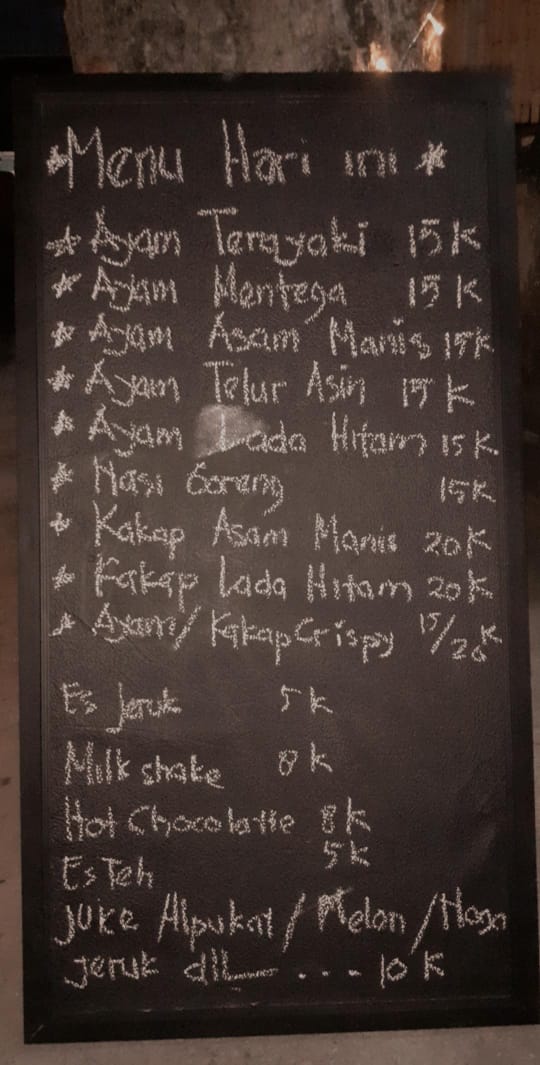 *Menu Hari ini *
* Ayam Terayaki 15 K
* Ayam Mentega 15 K
* Ayam Asam Manis 15 K
* Ayam Telur Asin 15 K
* Ayam Lada Hitam 15 K
* Nasi Goreng 15 K
* Kakap Asam Manis 20 K
* Kakap Lada Hitam 20 K
* Ayam/ Kakap Crispy 15/20 K
Es Jeruk 5 K
Milk shake 8 K
Hot Chocolatte 8 K
Es Teh 5 K
Juke Alpukat / Melon / Naga
Jeruk dll ... 10 K